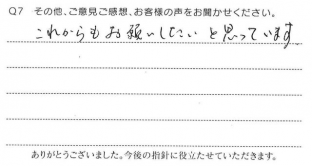 Q7 その他、ご意見ご感想、お客様の声をお聞かせください。
これからもお願いしたいと思っています
ありがとうございました。今後の指針に役立たせていただきます。